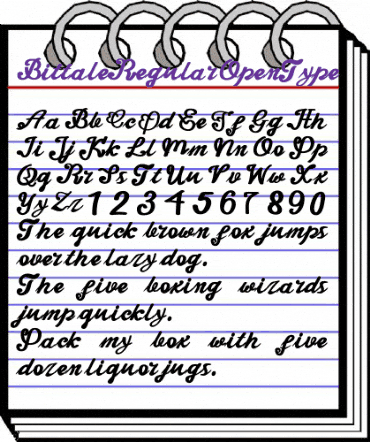 BittaleRegularOpenType
Aa Bb Cc Dd Ee Ff Gg Hh
Ii Jj Kk Ll Mm Nn Oo Pp
Qq Rr Ss Tt Uu Vv Ww Xx
Yy Zz 1 2 3 4 5 6 7 8 9 0
The quick brown fox jumps
over the lazy dog.
The five boxing wizards
jump quickly.
Pack my box with five
dozen liquor jugs.